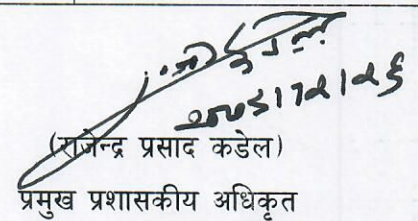 २०७९।१२।२६
(राजेन्द्र प्रसाद कडेल)
प्रमुख प्रशासकीय अधिकृत